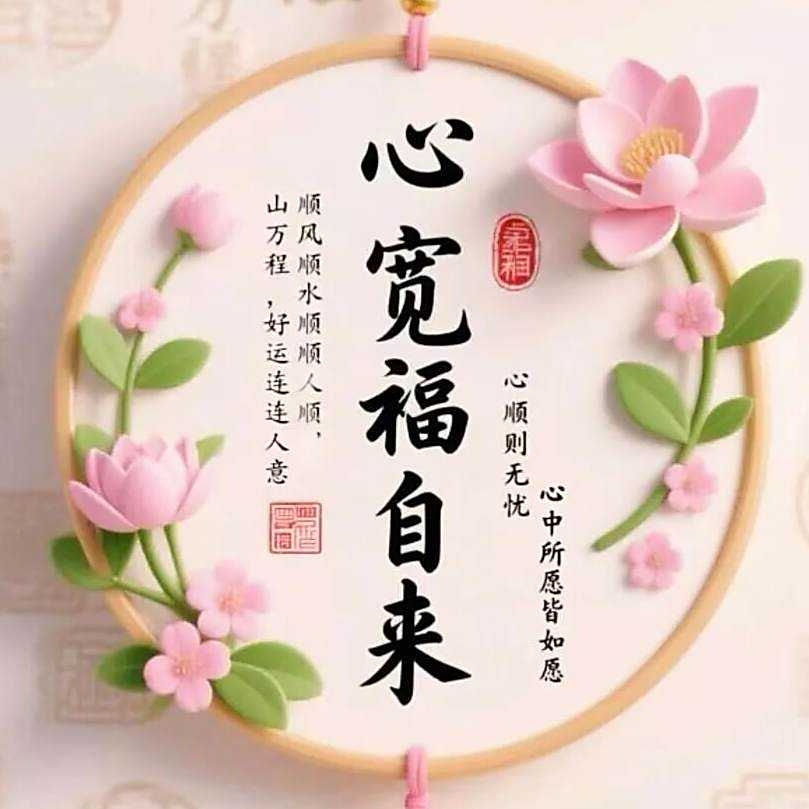 心宽福自来
心顺则无忧
心中所愿皆如愿
顺风顺水顺顺人顺，
山万程，好运连连人意